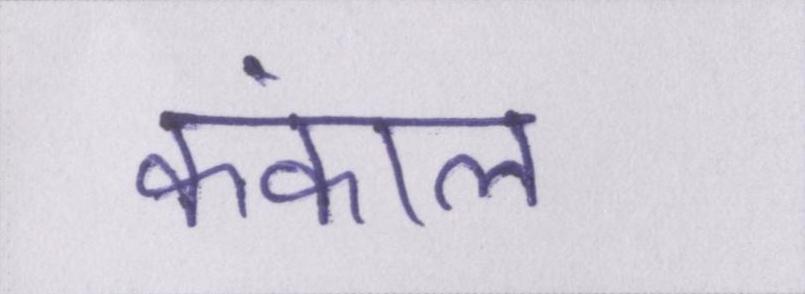 कंकाल